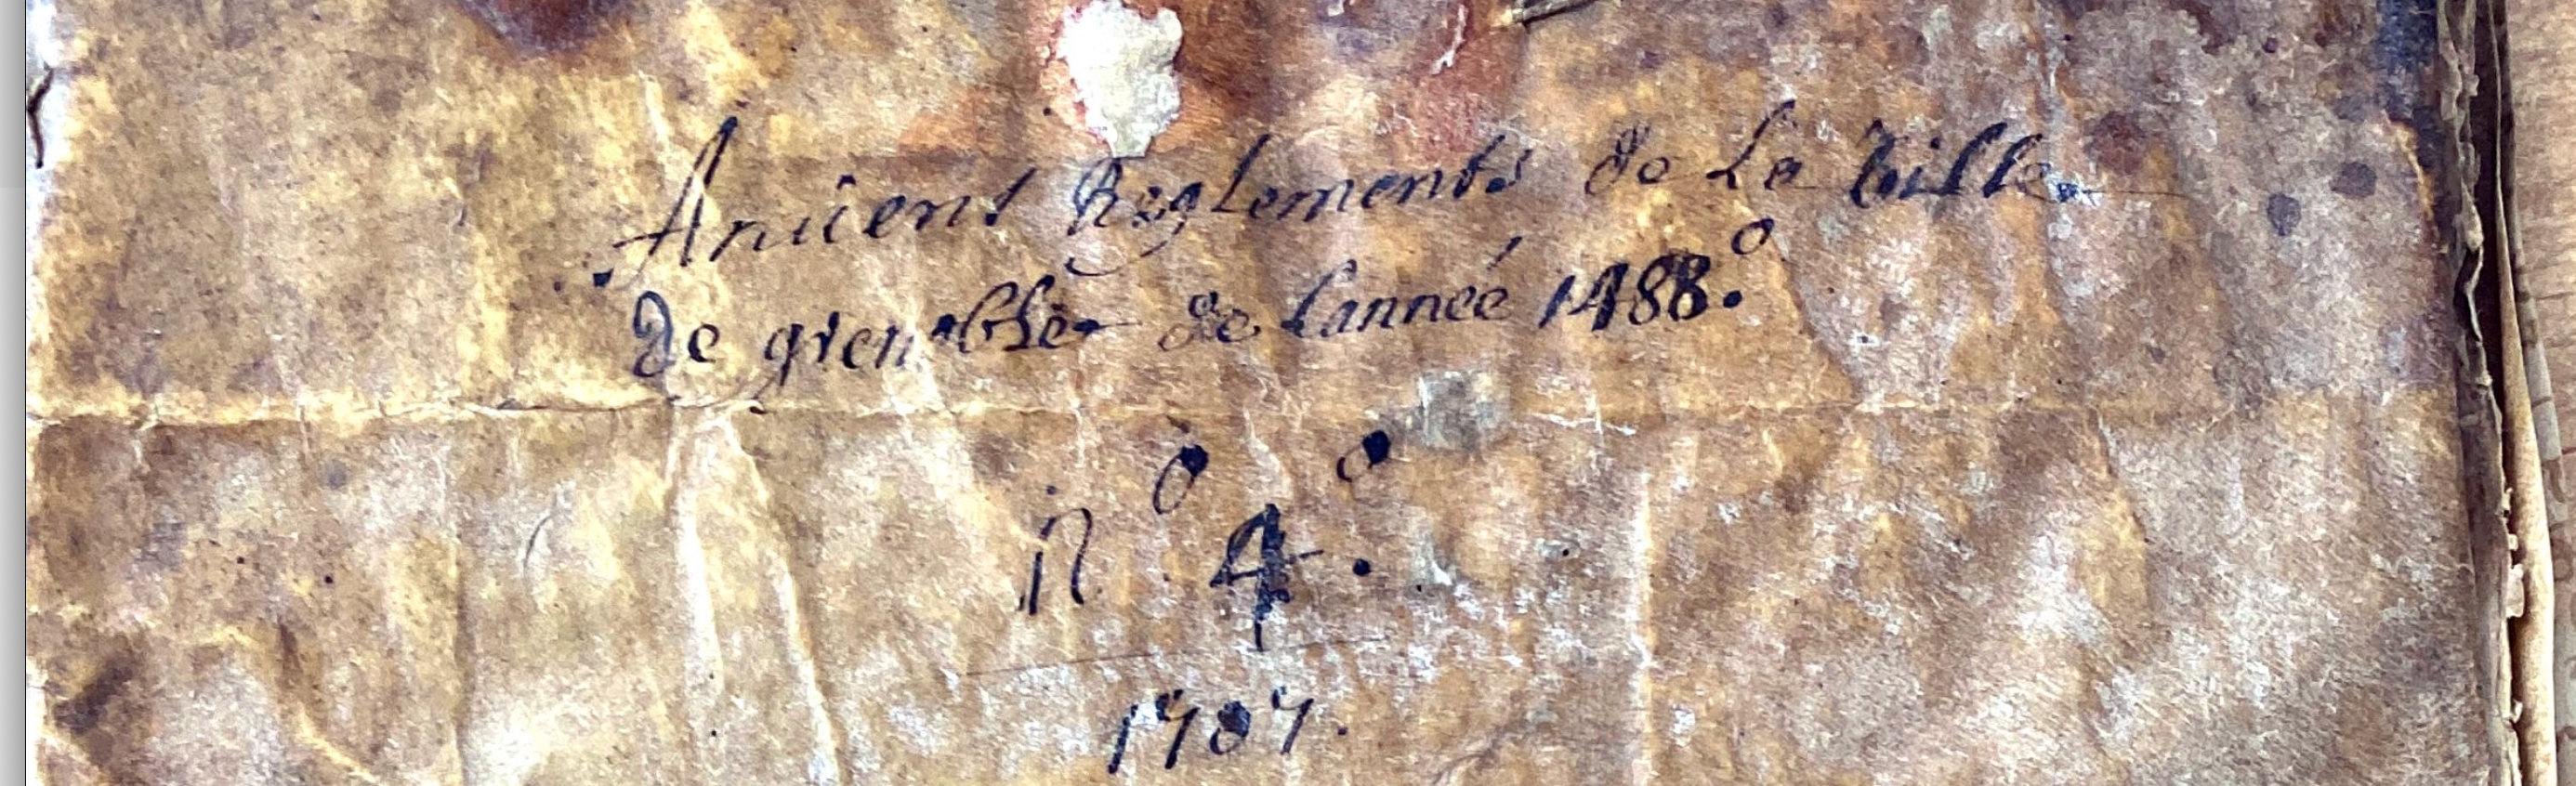 Anciens Reglements de La Ville
de grenoble de Lannee 1488.°
n° 4.°
1707.